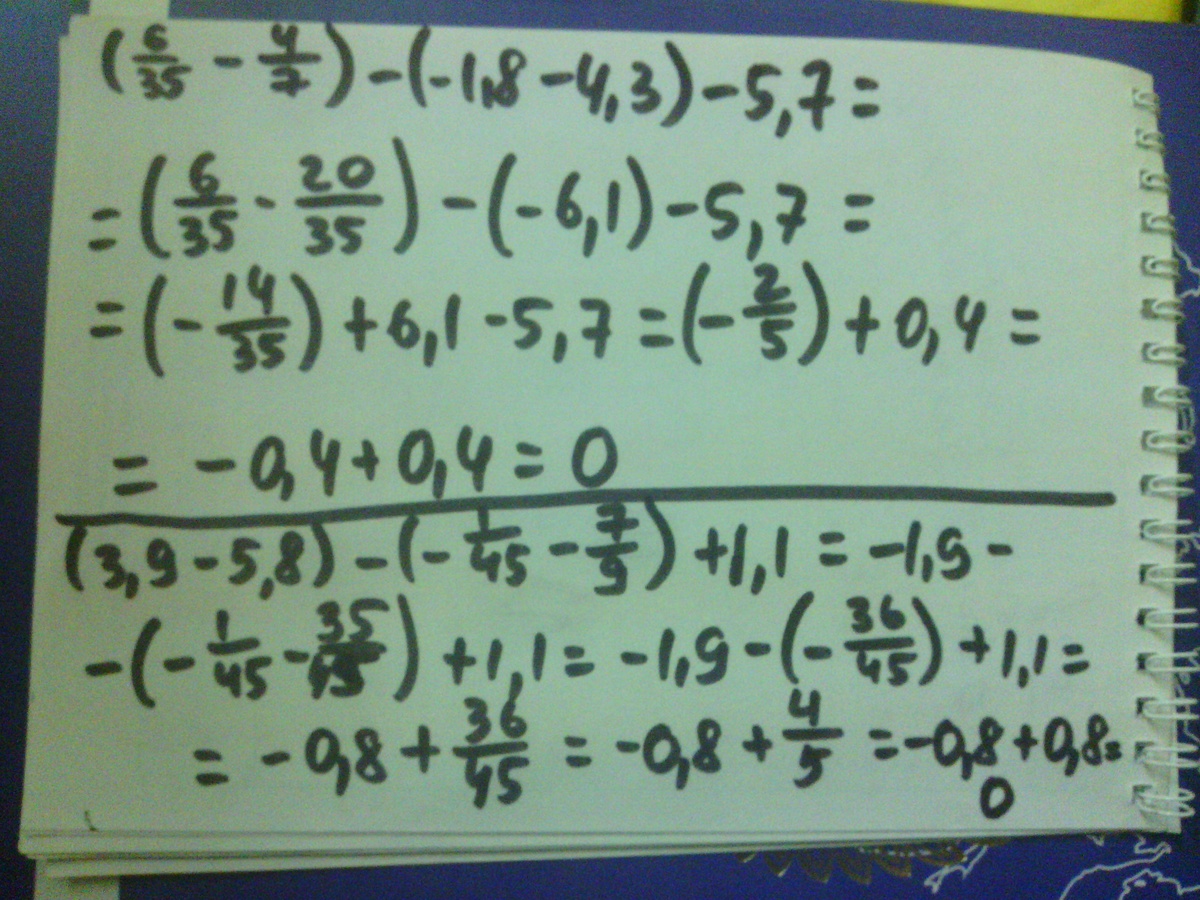 (6/35 - 4/7) - (-1,8 - 4,3) - 5,7 =
= (6/35 - 20/35) - (-6,1) - 5,7 =
= (-14/35) + 6,1 - 5,7 = (-2/5) + 0,4 =
= -0,4 + 0,4 = 0
(3,9 - 5,8) - (-1/45 - 7/9) + 1,1 = -1,9 -
- (-1/45 - 35/45) + 1,1 = -1,9 - (-36/45) + 1,1 =
= -0,8 + 36/45 = -0,8 + 4/5 = -0,8 + 0,8 =
0